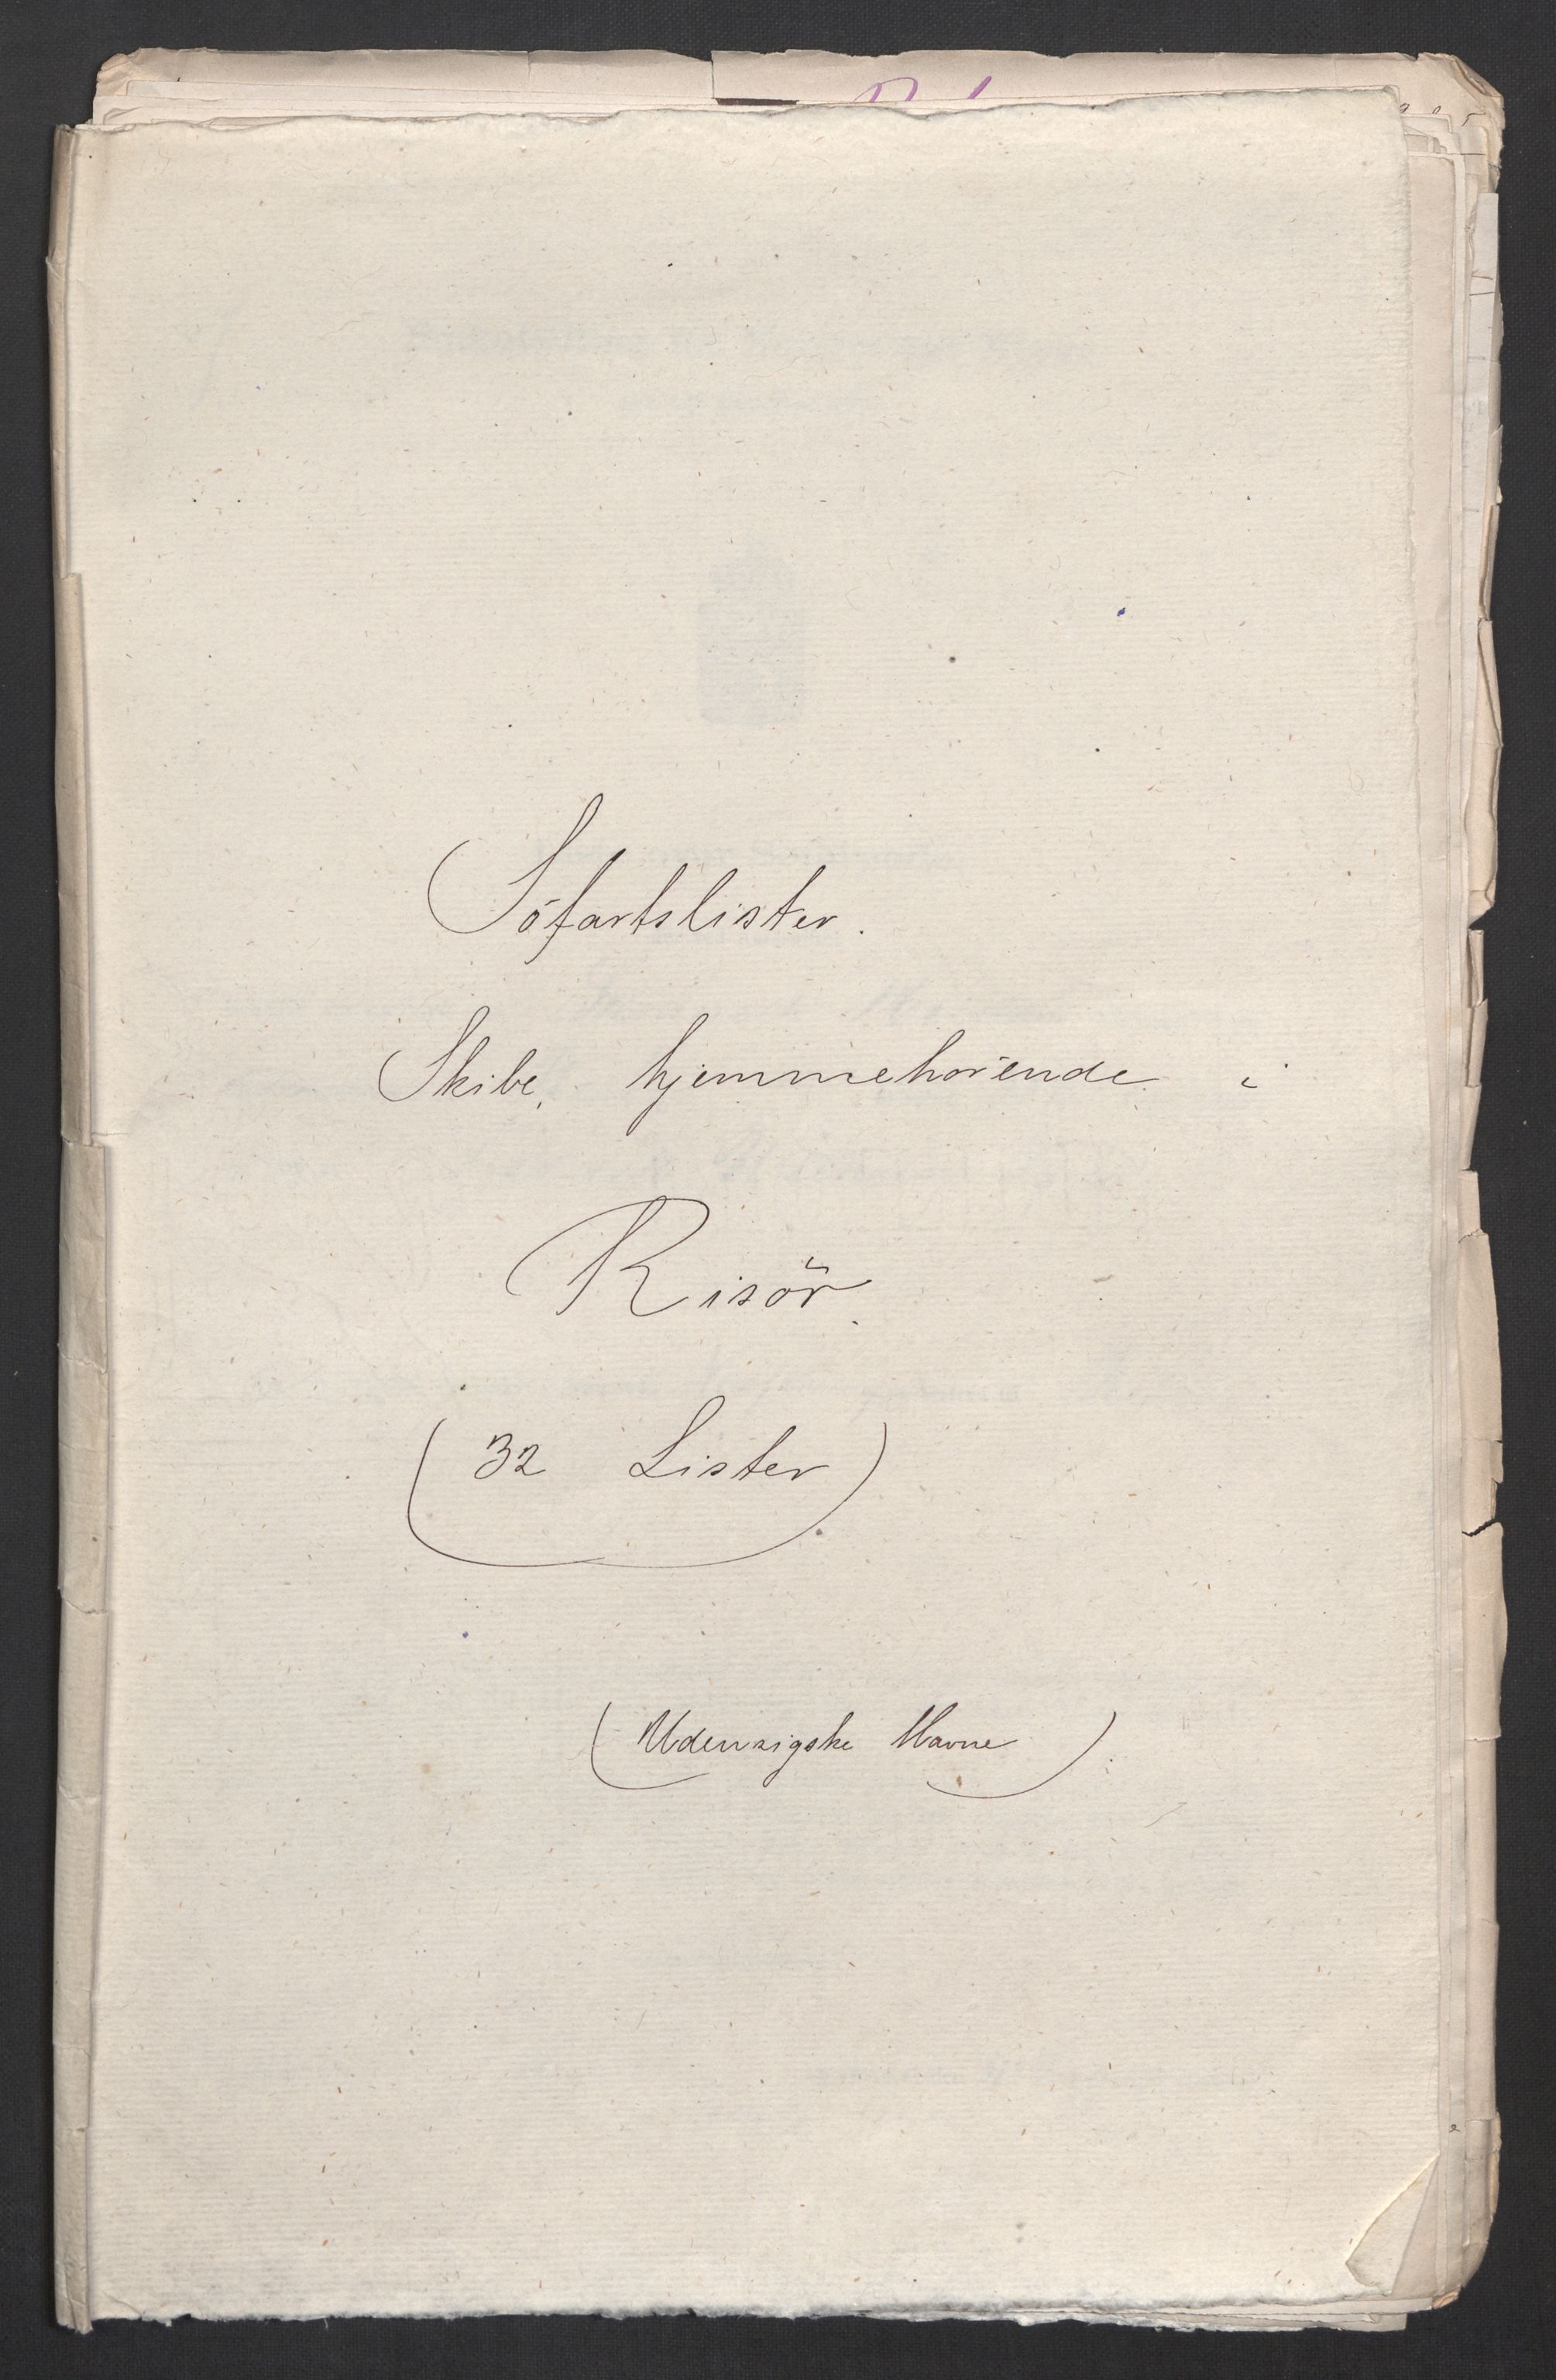 Söfartslister.
Skibe, hjemmehörende i
Risör.
(32 Lister)
(Udenrigske Havne)